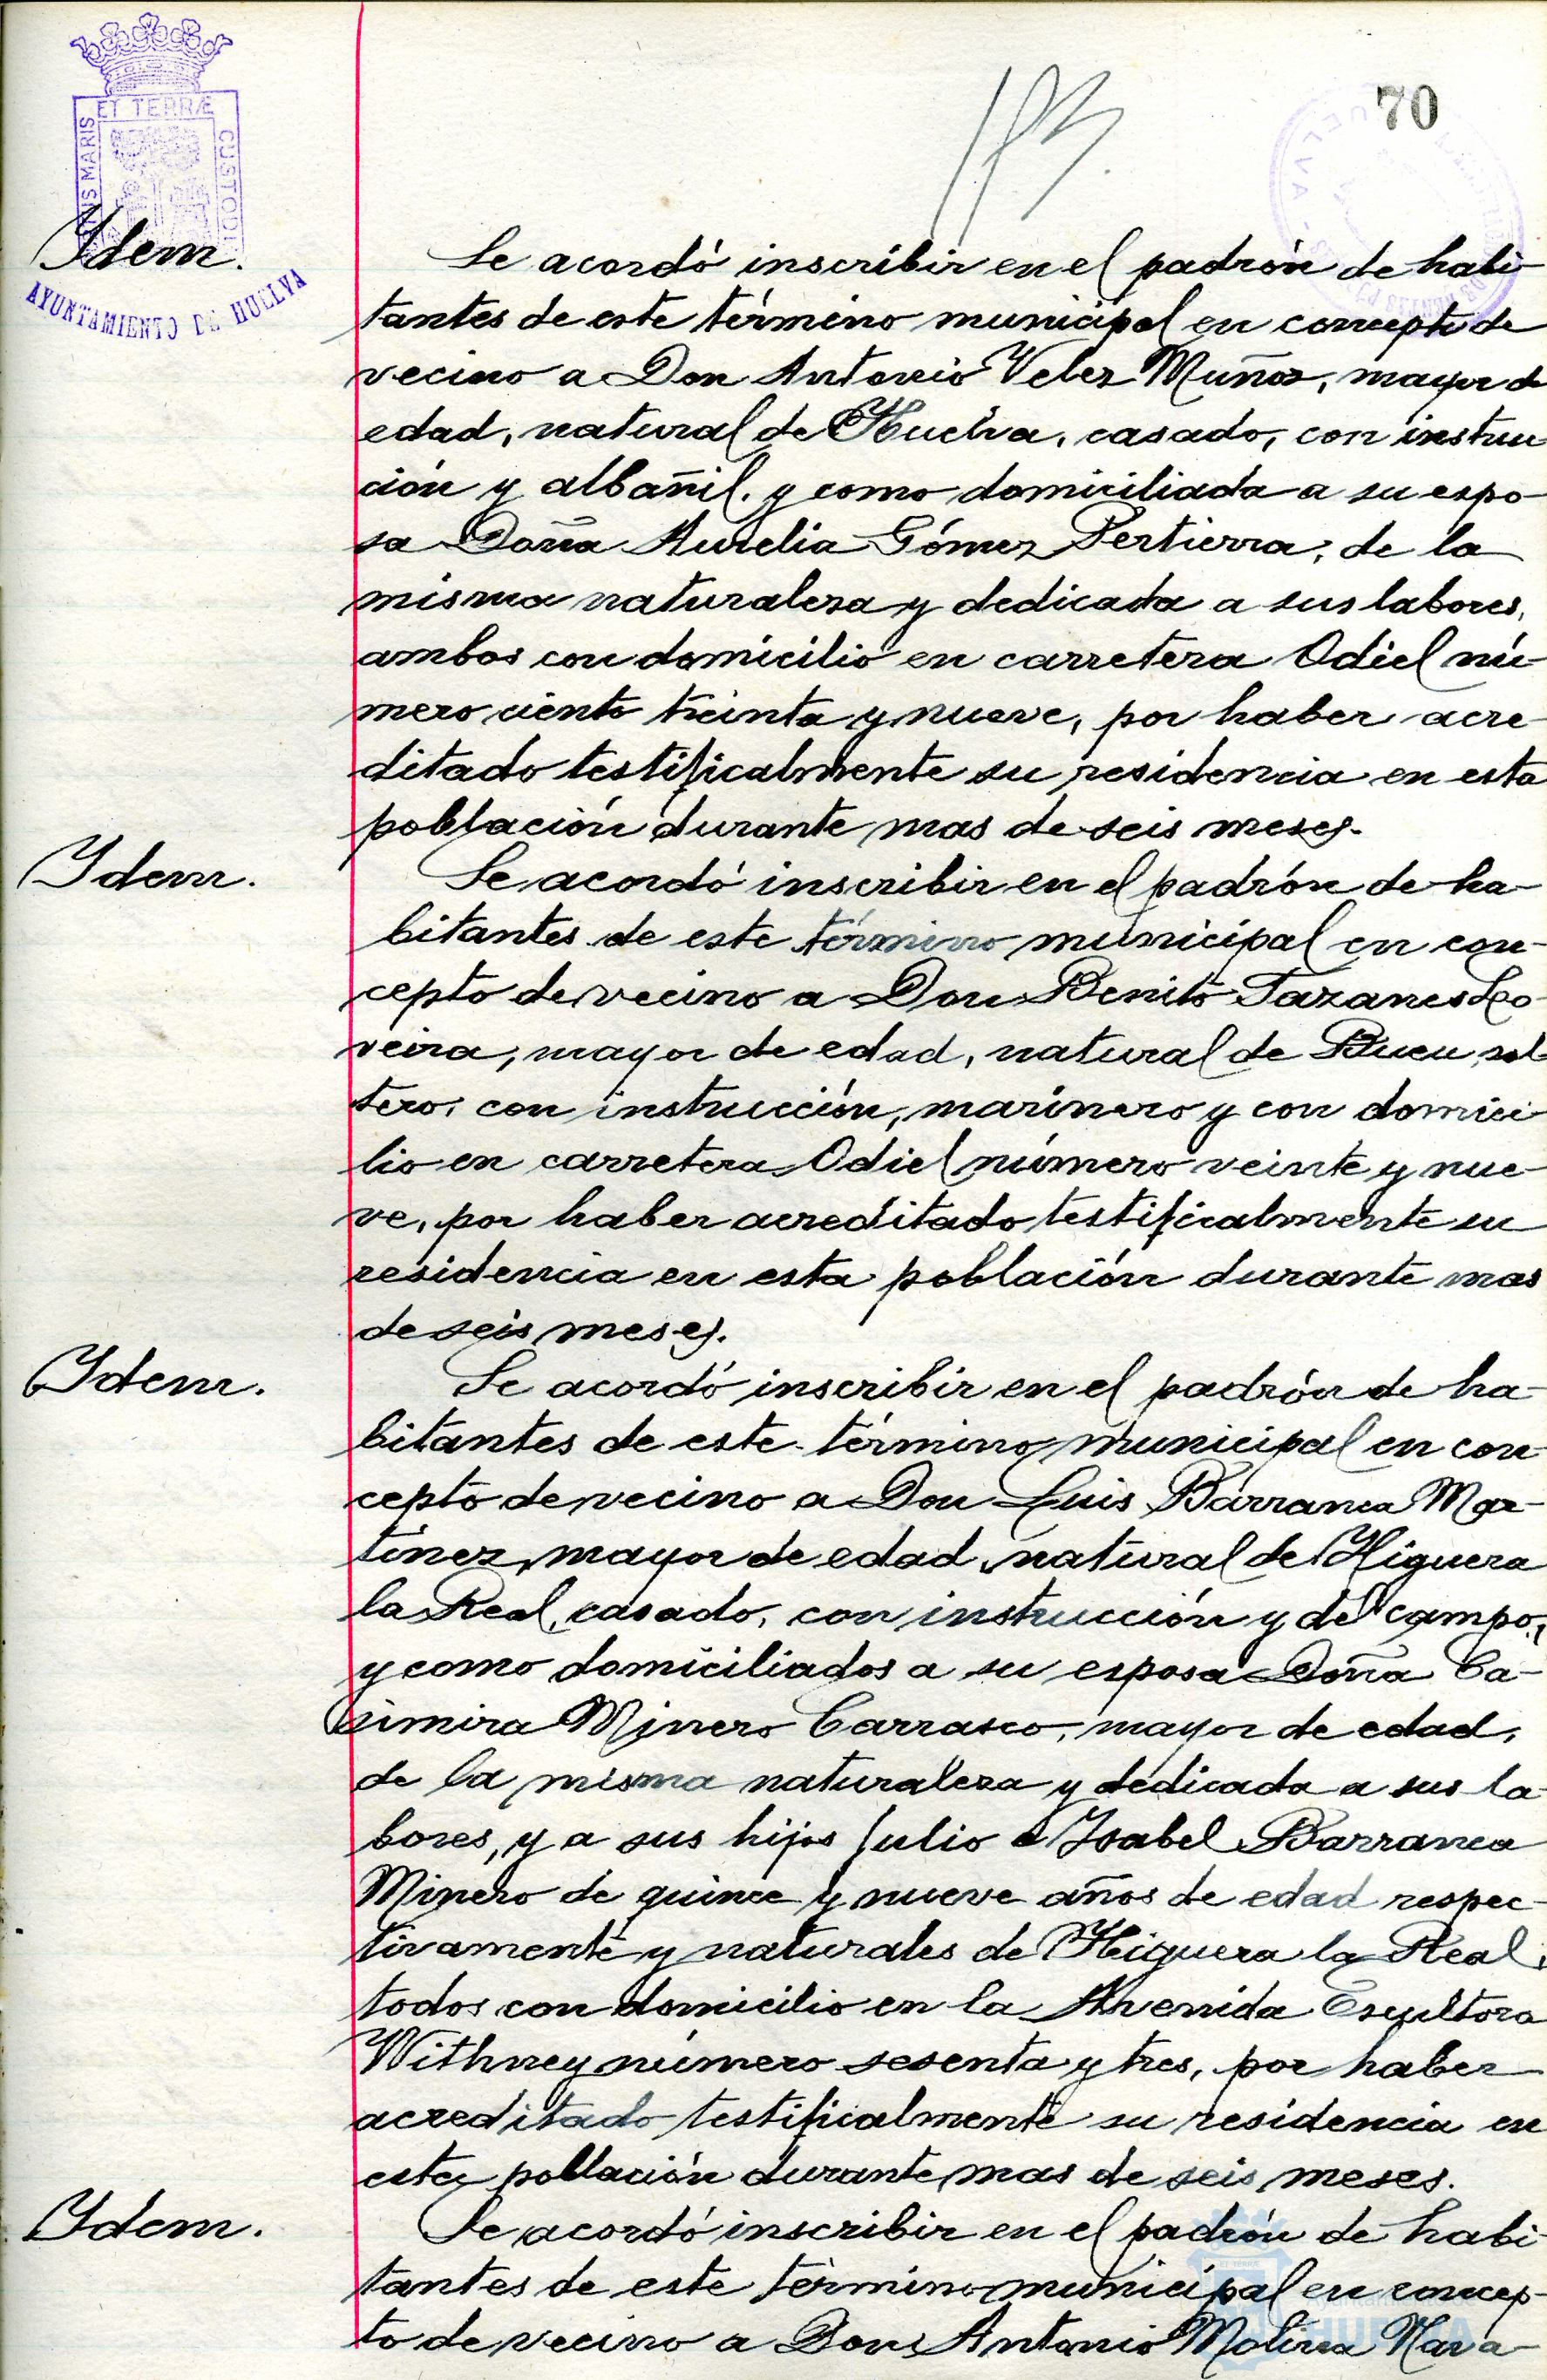 70
ET TERRÆ
CUSTODI
MARIS
AYUNTAMIENTO DE HUELVA
Ydem.
Se acordó inscribir en el padrón de habi-
tantes de este término municipal en concepto de
vecino a Don Antonio Velez Muñoz, mayor de
edad, natural de Huelva, casado, con instruc
ción y albañil. y como domiciliada a su espo-
sa Doña Aurelia Gómez Pertierra, de la
misma naturaleza y dedicada a sus labores,
ambos con domicilio en carretera Odiel nú-
mero ciento treinta y nueve, por haber acre-
ditado testificalmente su residencia en esta
población durante mas de seis meses.
Ydem.
Se acordó inscribir en el padrón de ha-
bitantes de este término municipal en con-
cepto de vecino a Don Benito
veira, mayor de edad, natural de Bueu, sol-
tero, con instrucción, marinero y con domici
lio en carretera Odiel número veinte y nue-
ve, por haber acreditado testificalmente su
residencia en esta población durante mas
de seis meses.
Ydem.
Se acordó inscribir en el padrón de ha-
bitantes de este término municipal en con-
cepto de vecino a Don Luis Barranca Mar-
tinez, mayor de edad, natural de Higuera
la Real, casado, con instrucción y del campo,
y como domiciliados a su esposa Doña Ca-
simira Minero Carrasco, mayor de edad,
de la misma naturaleza y dedicada a sus la-
bores, y a sus hijos Julio e Ysabel Barranca
Minero de quince y nueve años de edad respec-
tivamente y naturales de Higuera la Real,
todos con domicilio en la Avenida Escultora
Withney número sesenta y tres, por haber
acreditado testificalmente su residencia en
esta población durante mas de seis meses.
Ydem.
Se acordó inscribir en el padrón de habi-
tantes de este término municipal en concep-
to de vecino a Don Antonio Molina Nava-
HUELVA